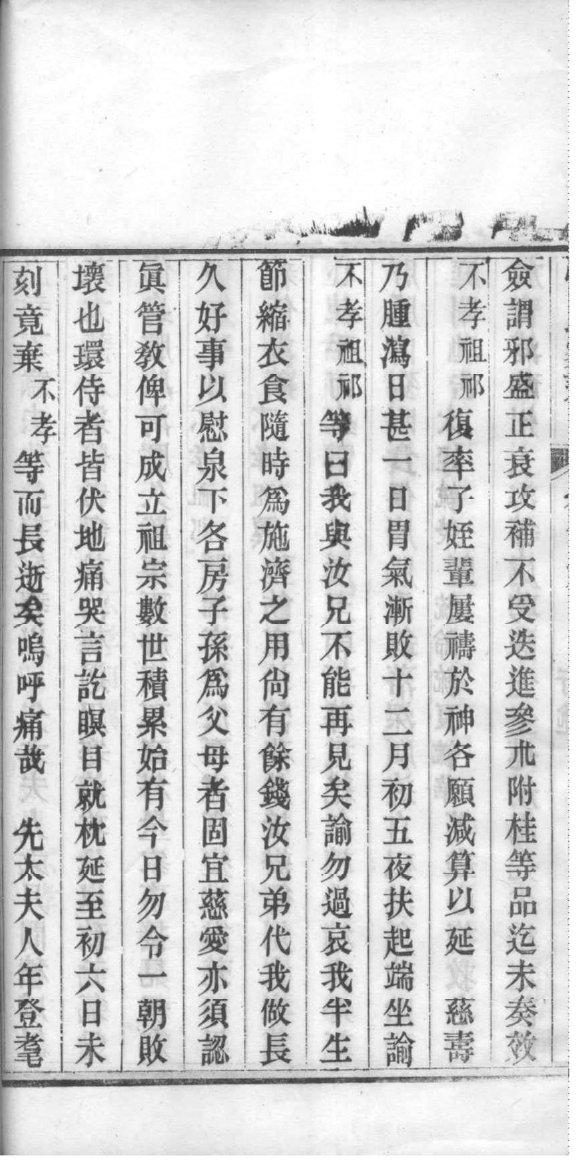 僉謂邪盛正衰攻補不受迭進參朮附桂等品迄未奏效
不孝祖祁復率子姪輩屢禱於神各願減算以延 慈壽
乃腫瀉日甚一日胃氣漸敗十二月初五夜扶起端坐諭
不孝祖祁等曰我與汝兄不能再見矣諭勿過哀我半生
節縮衣食隨時爲施濟之用尙有餘錢汝兄弟代我做長
久好事以慰泉下各房子孫爲父母者固宜慈愛亦須認
眞管敎俾可成立祖宗數世積累始有今日勿令一朝敗
壞也環侍者皆伏地痛哭言訖瞑目就枕延至初六日未
刻竟棄不孝等而長逝矣嗚呼痛哉 先太夫人年登耄